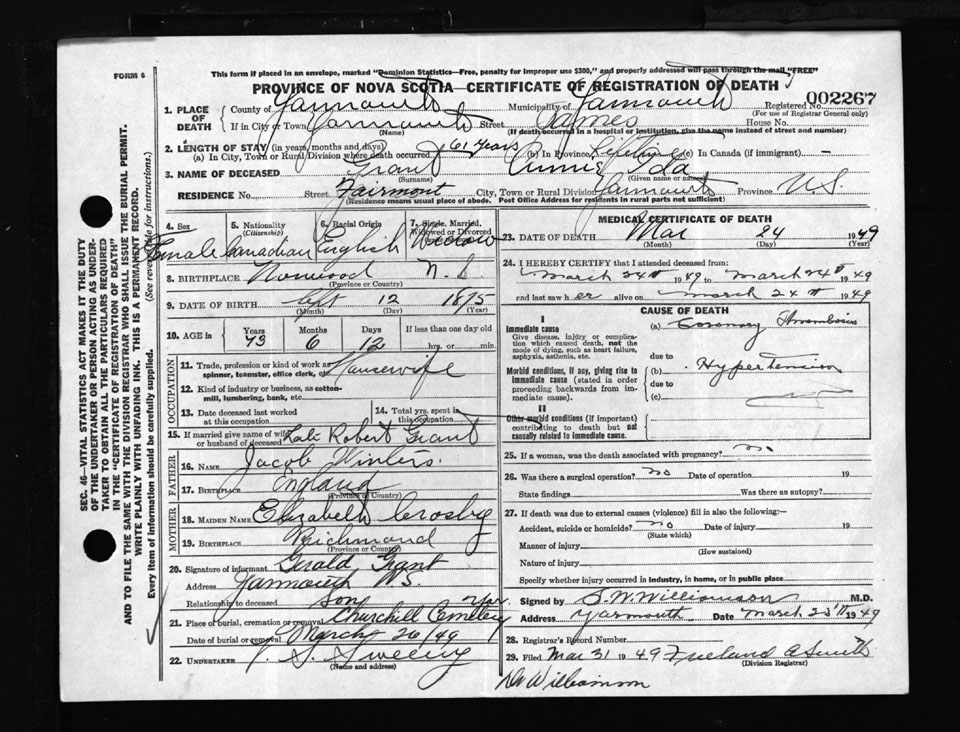 FORM 6
This form if placed in an envelope, marked "Dominion Statistics—Free, penalty for improper use $300," and properly addressed will pass through the mail "FREE"
PROVINCE OF NOVA SCOTIA—CERTIFICATE OF REGISTRATION OF DEATH
002267
1. PLACE OF DEATH County of Yarmouth Municipality of Yarmouth Registered No.
(For use of Registrar General only)
If in City or Town Yarmouth Street James House No.
(Name) (If death occurred in a hospital or institution, give the name instead of street and number)
2. LENGTH OF STAY (in years, months and days)
(a) In City, Town or Rural Division where death occurred 61 years (b) In Province Lifetime (c) In Canada (if immigrant) —
3. NAME OF DECEASED Grant Annie Ida
(Surname) (Given name or names)
RESIDENCE No. Street Fairmont City, Town or Rural Division Yarmouth Province N.S.
(Residence means usual place of abode. Post Office Address for residents in rural parts not sufficient)
4. Sex 5. Nationality (Citizenship) 6. Racial Origin 7. Single, Married, Widowed or Divorced
Female Canadian English Widow
8. BIRTHPLACE Norwood N.S.
(Province or Country)
9. DATE OF BIRTH Sept 12 1875
(Month) (Day) (Year)
10. AGE in Years Months Days If less than one day old
73 6 12 hrs. or min.
OCCUPATION
11. Trade, profession or kind of work as spinner, teamster, office clerk, etc. Housewife
12. Kind of industry or business, as cotton-mill, lumbering, bank, etc.
13. Date deceased last worked at this occupation 14. Total yrs. spent in this occupation
15. If married give name of wife or husband of deceased Late Robert Grant
FATHER
16. NAME Jacob Winters
17. BIRTHPLACE England
(Province or Country)
MOTHER
18. MAIDEN NAME Elizabeth Crosby
19. BIRTHPLACE Richmond
(Province or Country)
20. Signature of informant Gerald Grant
Address Yarmouth N.S.
Relationship to deceased Son
21. Place of burial, cremation or removal Churchill Cemetery Yar.
Date of burial or removal March 26/49
22. UNDERTAKER J. S. Sweeny
(Name and address)
MEDICAL CERTIFICATE OF DEATH
23. DATE OF DEATH Mar 24 1949
(Month) (Day) (Year)
24. I HEREBY CERTIFY that I attended deceased from:
March 24th 1949 to March 24th 1949
and last saw her alive on March 24th 1949
CAUSE OF DEATH
I
Immediate cause
Give disease, injury or complication which caused death, not the mode of dying, such as heart failure, asphyxia, asthenia, etc.
(a) Coronary Thrombosis
due to
Morbid conditions, if any, giving rise to immediate cause (stated in order proceeding backwards from immediate cause).
(b) Hypertension
due to
(c)
II
Other morbid conditions (if important) contributing to death but not causally related to immediate cause.
25. If a woman, was the death associated with pregnancy? no
26. Was there a surgical operation? no Date of operation 19
State findings Was there an autopsy?
27. If death was due to external causes (violence) fill in also the following:—
Accident, suicide or homicide? no Date of injury 19
(State which)
Manner of injury
(How sustained)
Nature of injury
Specify whether injury occurred in industry, in home, or in public place
Signed by S.W. Williamson M.D.
Address Yarmouth Date March 25th 1949
28. Registrar's Record Number
29. Filed Mar 31 1949 Freeland A Smith
(Division Registrar)
Dr Williamson
SEC. 46—VITAL STATISTICS ACT MAKES IT THE DUTY OF THE UNDERTAKER OR PERSON ACTING AS UNDERTAKER TO OBTAIN ALL THE PARTICULARS REQUIRED IN THE "CERTIFICATE OF REGISTRATION OF DEATH" AND TO FILE THE SAME WITH THE DIVISION REGISTRAR WHO SHALL ISSUE THE BURIAL PERMIT.
WRITE PLAINLY WITH UNFADING INK. THIS IS A PERMANENT RECORD.
Every item of information should be carefully supplied. (See reverse side for instructions.)